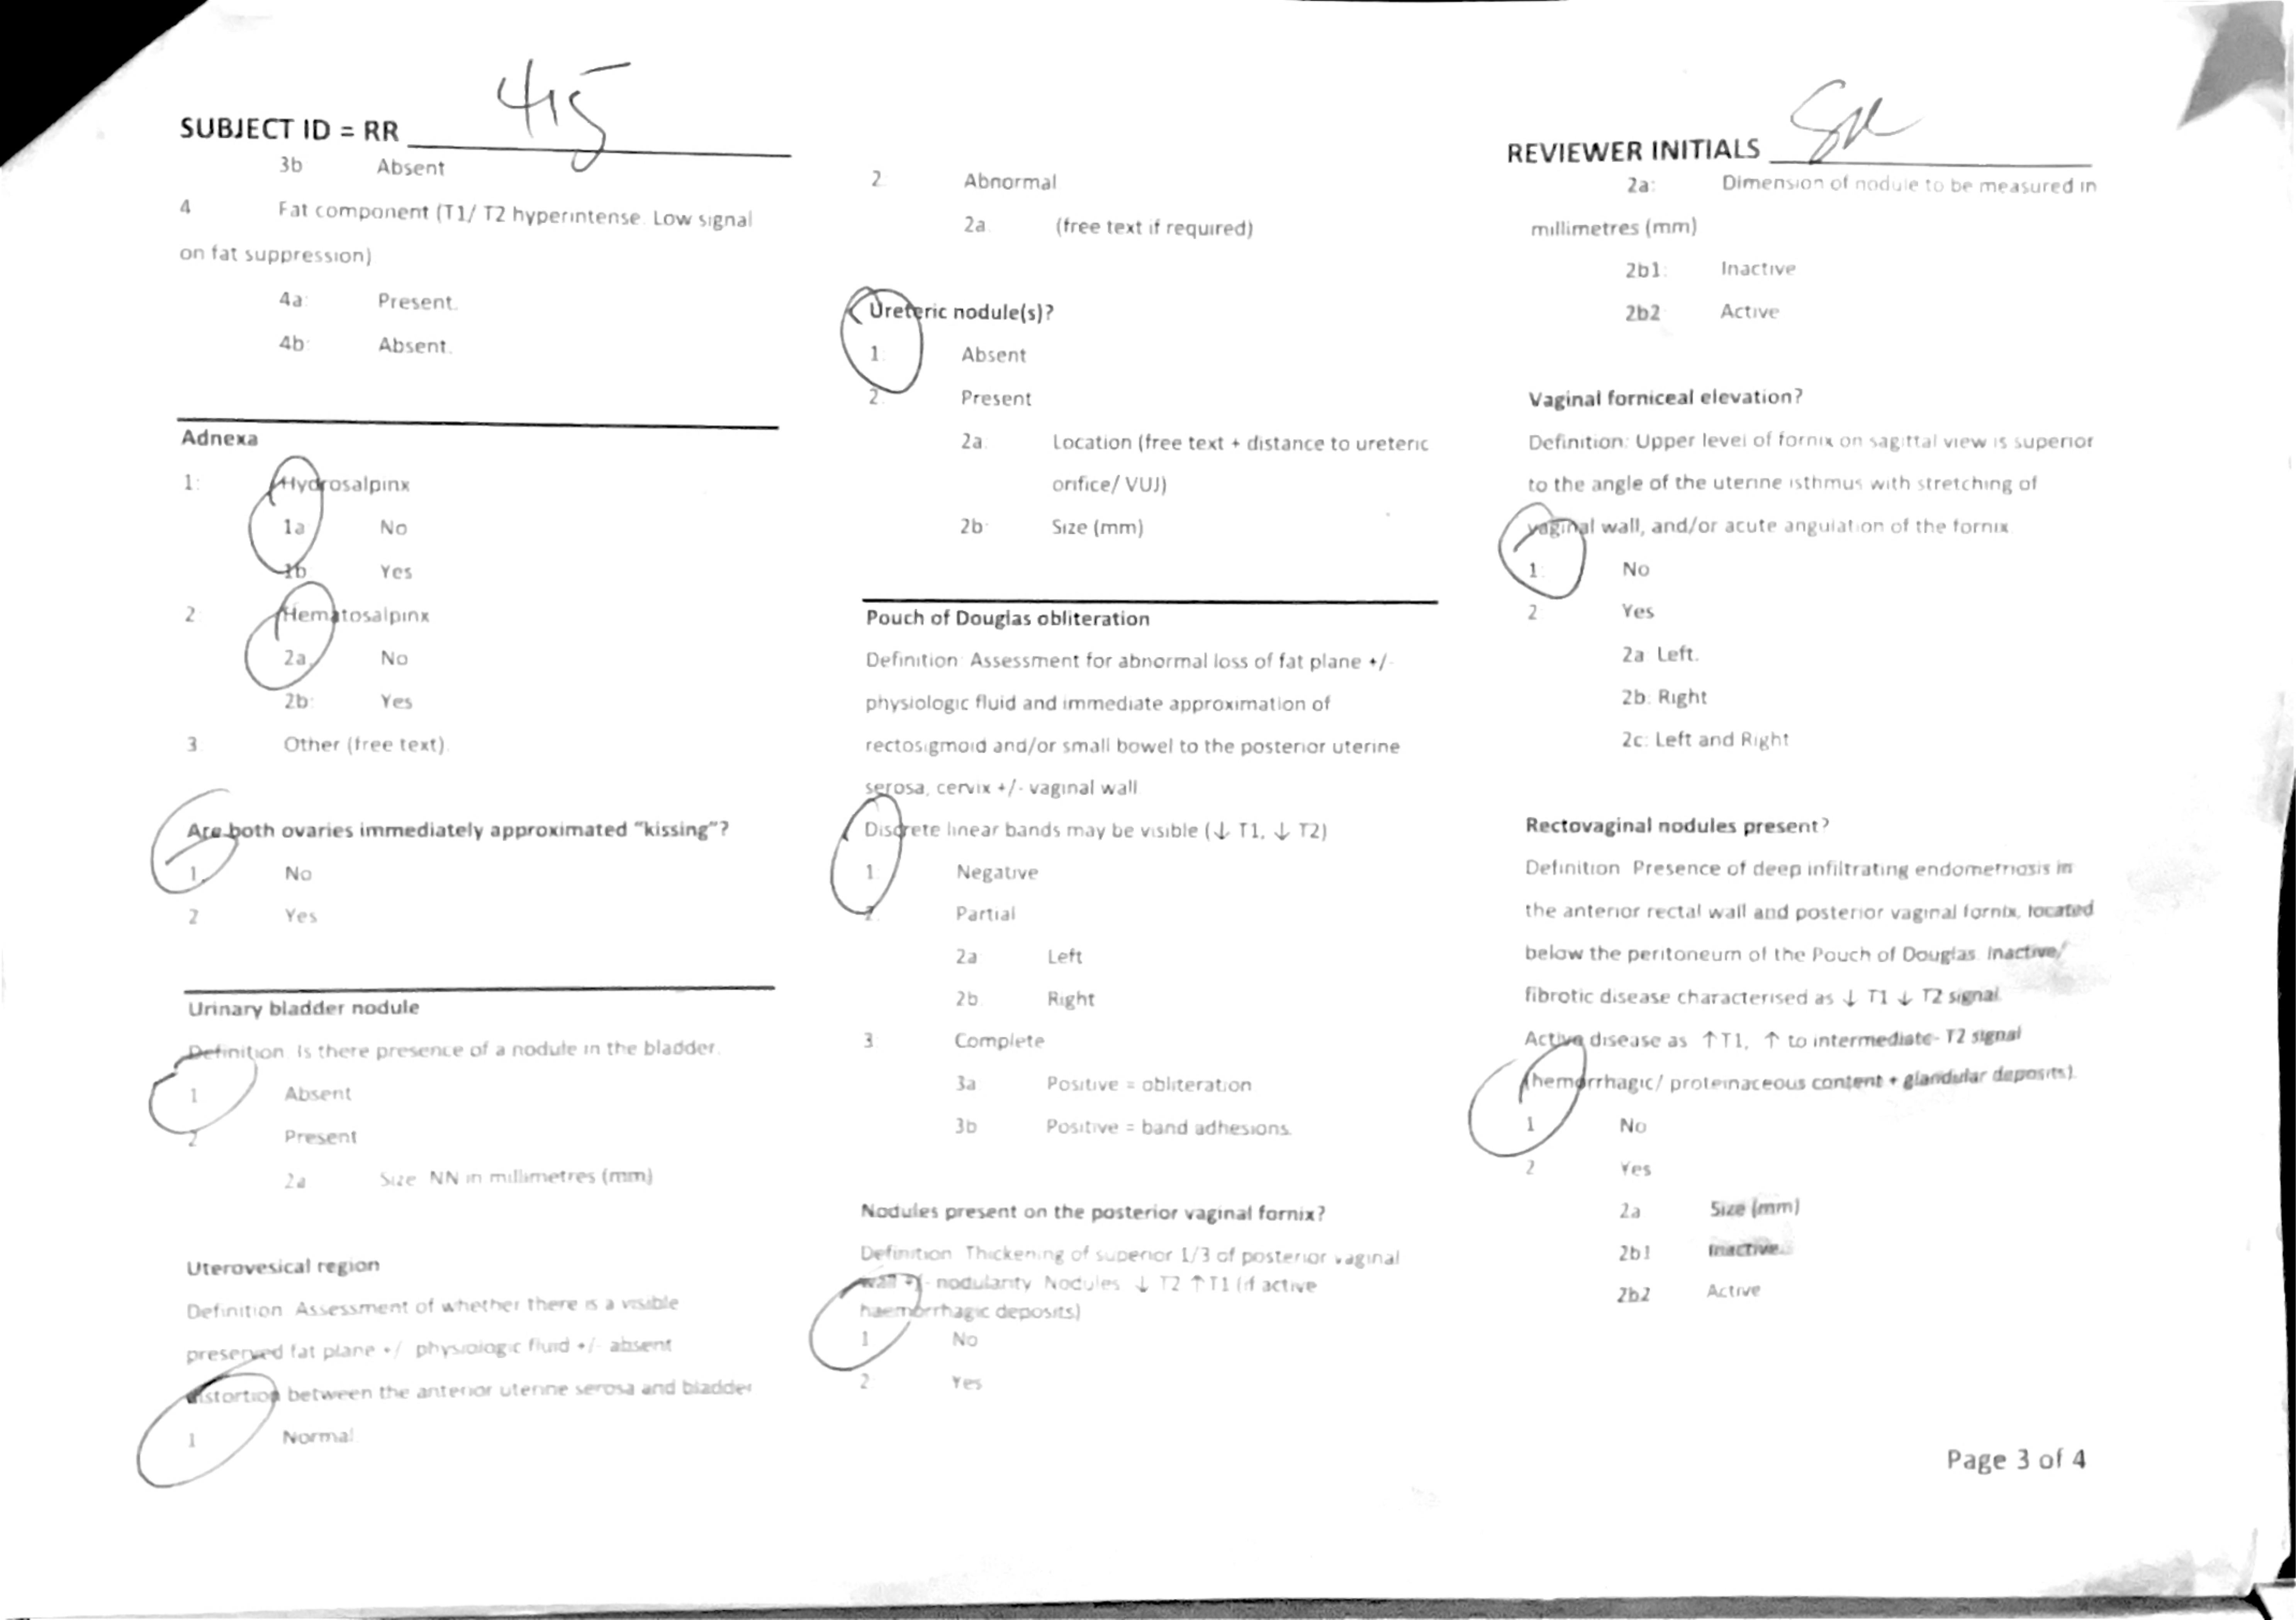 SUBJECT ID = RR 415
3b Absent
4 Fat component (T1/ T2 hyperintense. Low signal
on fat suppression)
4a: Present.
4b: Absent.
Adnexa
1: Hydrosalpinx
1a No
1b Yes
2: Hematosalpinx
2a No
2b: Yes
3 Other (free text).
Are both ovaries immediately approximated “kissing”?
1. No
2 Yes
Urinary bladder nodule
Definition: Is there presence of a nodule in the bladder.
1 Absent
2 Present
2a Size NN in millimetres (mm)
Uterovesical region
Definition Assessment of whether there is a visible
preserved fat plane +/ physiologic fluid +/- absent
distortion between the anterior uterine serosa and bladder
1 Normal
2. Abnormal
2a. (free text if required)
Ureteric nodule(s)?
1: Absent
2. Present
2a: Location (free text + distance to ureteric
orifice/ VUJ)
2b: Size (mm)
Pouch of Douglas obliteration
Definition: Assessment for abnormal loss of fat plane +/-
physiologic fluid and immediate approximation of
rectosigmoid and/or small bowel to the posterior uterine
serosa, cervix +/- vaginal wall
Discrete linear bands may be visible (↓ T1, ↓ T2)
1: Negative
2. Partial
2a Left
2b. Right
3 Complete
3a Positive = obliteration
3b Positive = band adhesions.
Nodules present on the posterior vaginal fornix?
Definition Thickening of superior 1/3 of posterior vaginal
wall +/- nodularity Nodules ↓ T2 ↑T1 (if active
haemorrhagic deposits)
1 No
2 Yes
REVIEWER INITIALS
2a: Dimension of nodule to be measured in
millimetres (mm)
2b1: Inactive
2b2 Active
Vaginal forniceal elevation?
Definition: Upper level of fornix on sagittal view is superior
to the angle of the uterine isthmus with stretching of
vaginal wall, and/or acute angulation of the fornix
1: No
2 Yes
2a Left.
2b: Right
2c: Left and Right
Rectovaginal nodules present?
Definition Presence of deep infiltrating endometriosis in
the anterior rectal wall and posterior vaginal fornix, located
below the peritoneum of the Pouch of Douglas. Inactive/
fibrotic disease characterised as ↓ T1 ↓ T2 signal.
Active disease as ↑T1, ↑ to intermediate- T2 signal
(hemorrhagic/ proteinaceous content + glandular deposits).
1 No
2 Yes
2a Size (mm)
2b1 Inactive
2b2 Active
Page 3 of 4